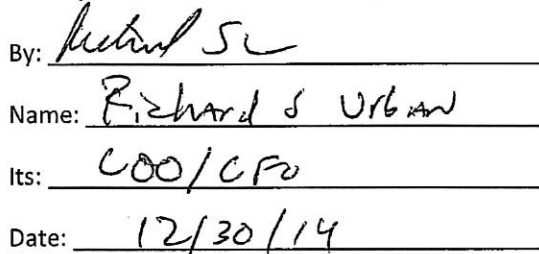 By:
Name: Richard S Urban
Its: COO/CFO
Date: 12/30/14